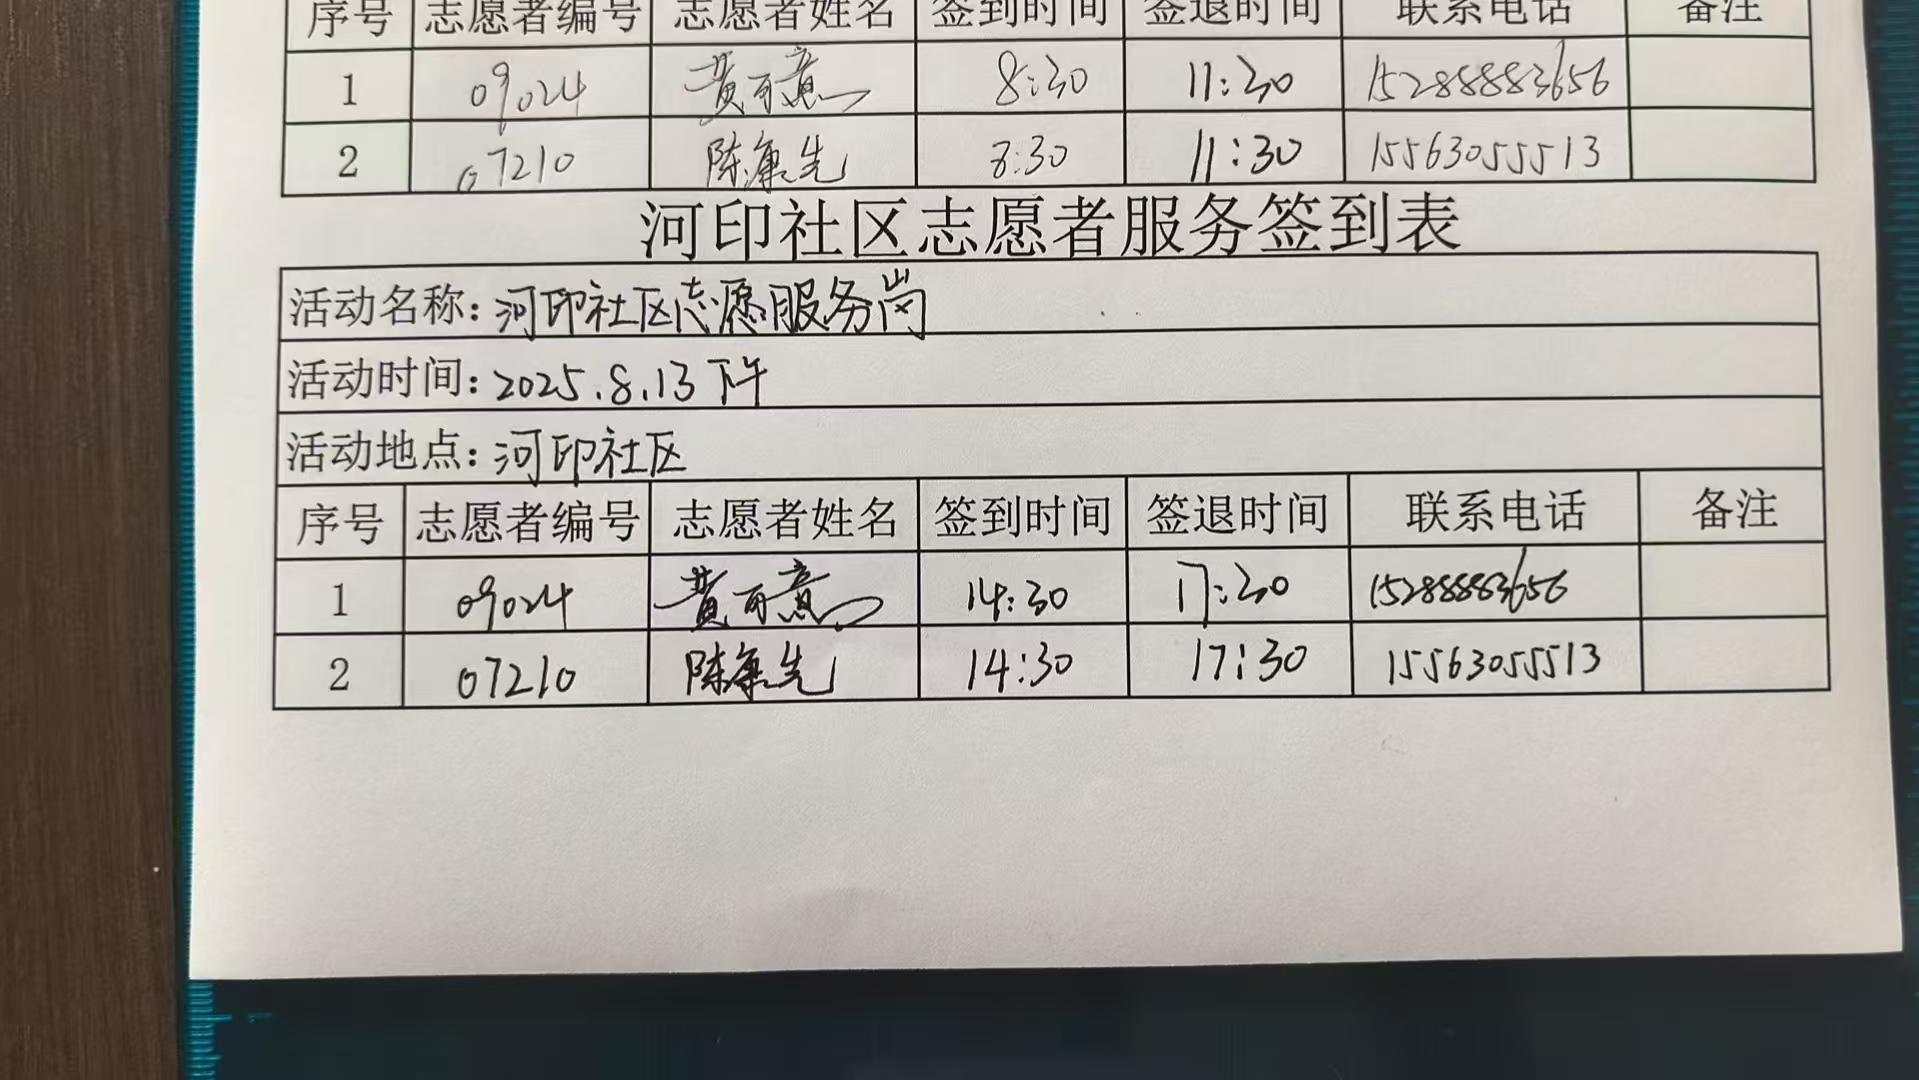 序号 志愿者编号 志愿者姓名 签到时间 签退时间 联系电话 备注
1 09024 黄可意 8:30 11:30 15288883656
2 07210 陈康先 8:30 11:30 15563055513
河印社区志愿者服务签到表
活动名称:河印社区志愿服务岗
活动时间:2025.8.13下午
活动地点:河印社区
序号 志愿者编号 志愿者姓名 签到时间 签退时间 联系电话 备注
1 09024 黄可意 14:30 17:30 15288883656
2 07210 陈康先 14:30 17:30 15563055513